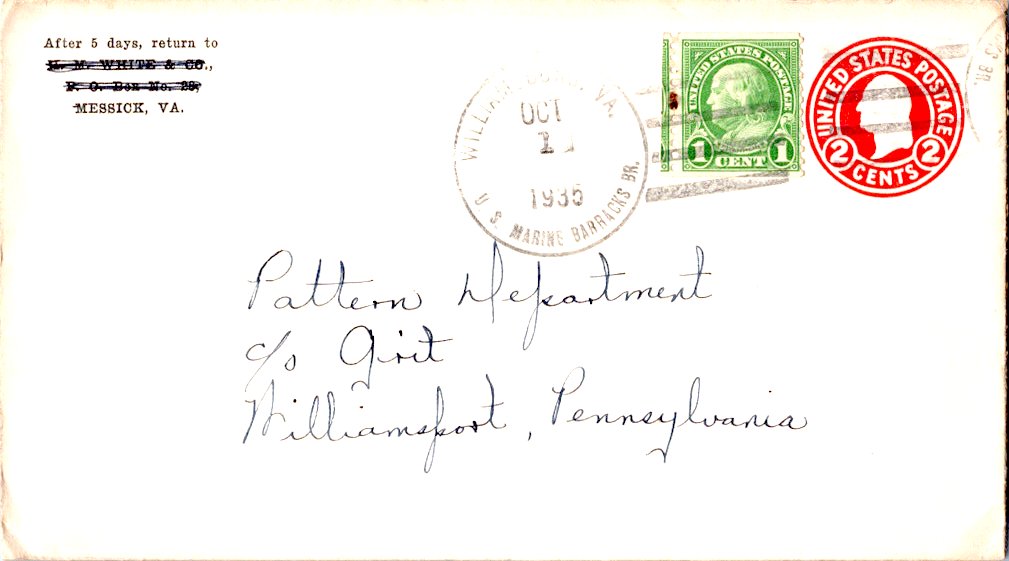 After 5 days, return to
H. M. WHITE & CO.,
P. O. Box No. 29,
MESSICK, VA.
VA.
OCT
1935
U. S. MARINE BARRACKS BR.
UNITED STATES POSTAGE
1 CENT 1
UNITED STATES POSTAGE
2 CENTS 2
BR.
Pattern Department
c/o Grit
Williamsport, Pennsylvania